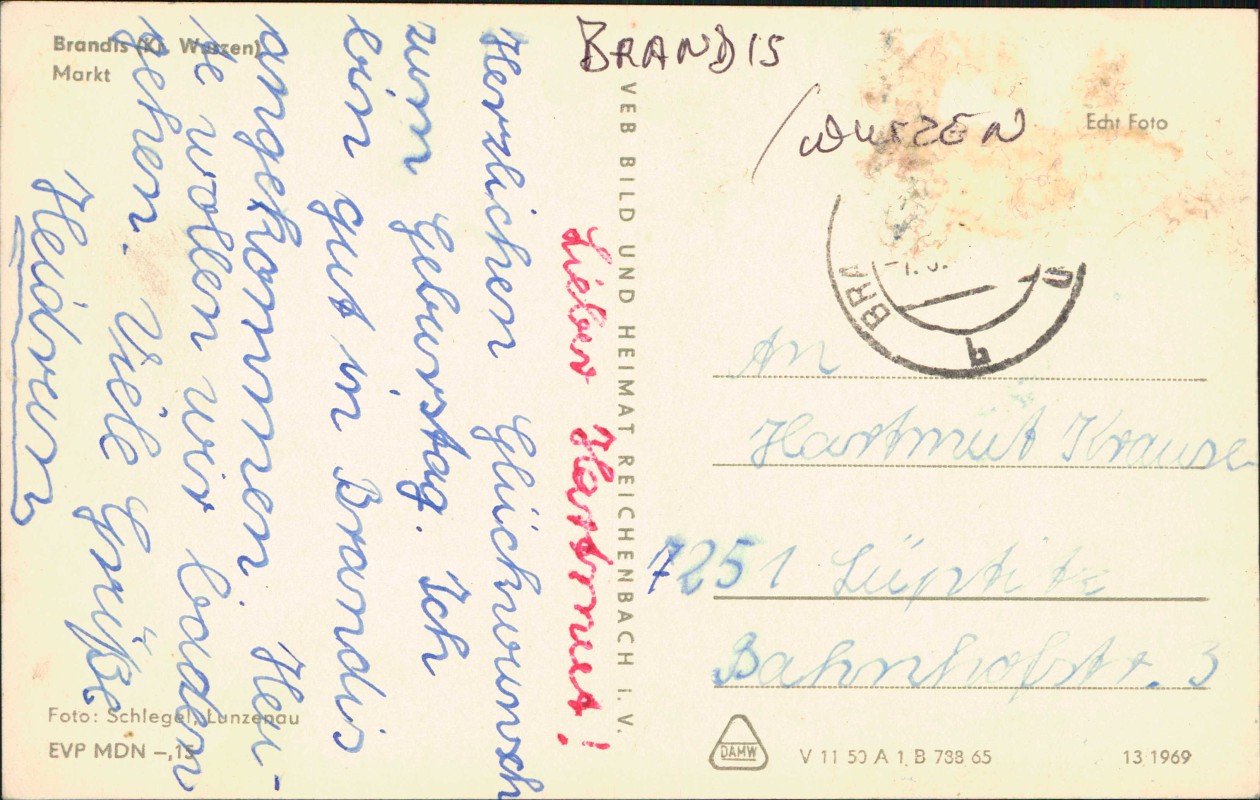 Brandis (Kr. Wurzen)
Markt
Lieber Hartmut!
Herzlichen Glückwunsch
zum Geburstag. Ich
bin gut in Brandis
angekommen. Heu-
te wollen wir baden
gehen. Viele Grüße
Heidrun
Foto: Schlegel, Lunzenau
EVP MDN –,15
VEB BILD UND HEIMAT REICHENBACH i. V.
BRANDIS
/WURZEN
Echt Foto
BRA
An
Hartmut Krause
7251 Lüptitz
Bahnhofstr. 3
DAMW
V 11 50 A 1, B 738 65
13 1969